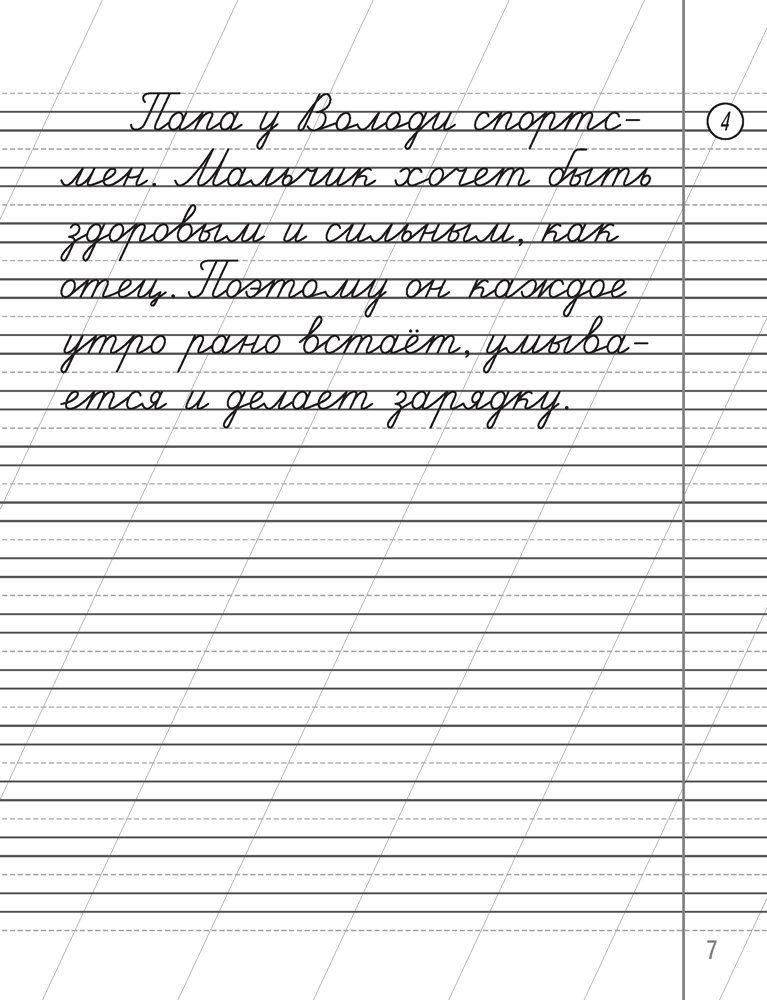 Папа у Володи спортс-
4
мен. Мальчик хочет быть
здоровым и сильным, как
отец. Поэтому он каждое
утро рано встаёт, умыва-
ется и делает зарядку.
7